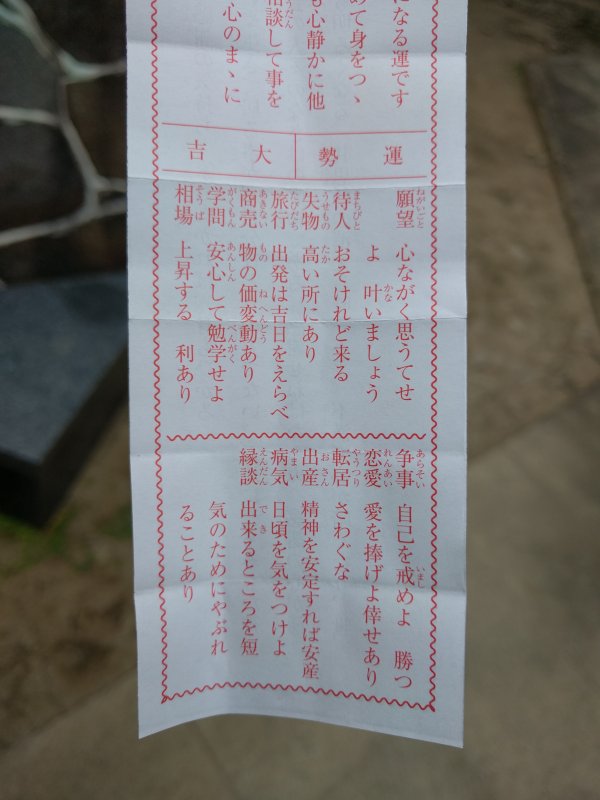 になる運です
めて身をつゝ
も心静かに他
相談して事を
心のまゝに
運勢 大吉
願望 心ながく思うてせ
よ 叶いましょう
待人 おそけれど来る
失物 高い所にあり
旅行 出発は吉日をえらべ
商売 物の価変動あり
学問 安心して勉学せよ
相場 上昇する 利あり
争事 自己を戒めよ 勝つ
恋愛 愛を捧げよ倖せあり
転居 さわぐな
出産 精神を安定すれば安産
病気 日頃を気をつけよ
縁談 出来るところを短
気のためにやぶれ
ることあり